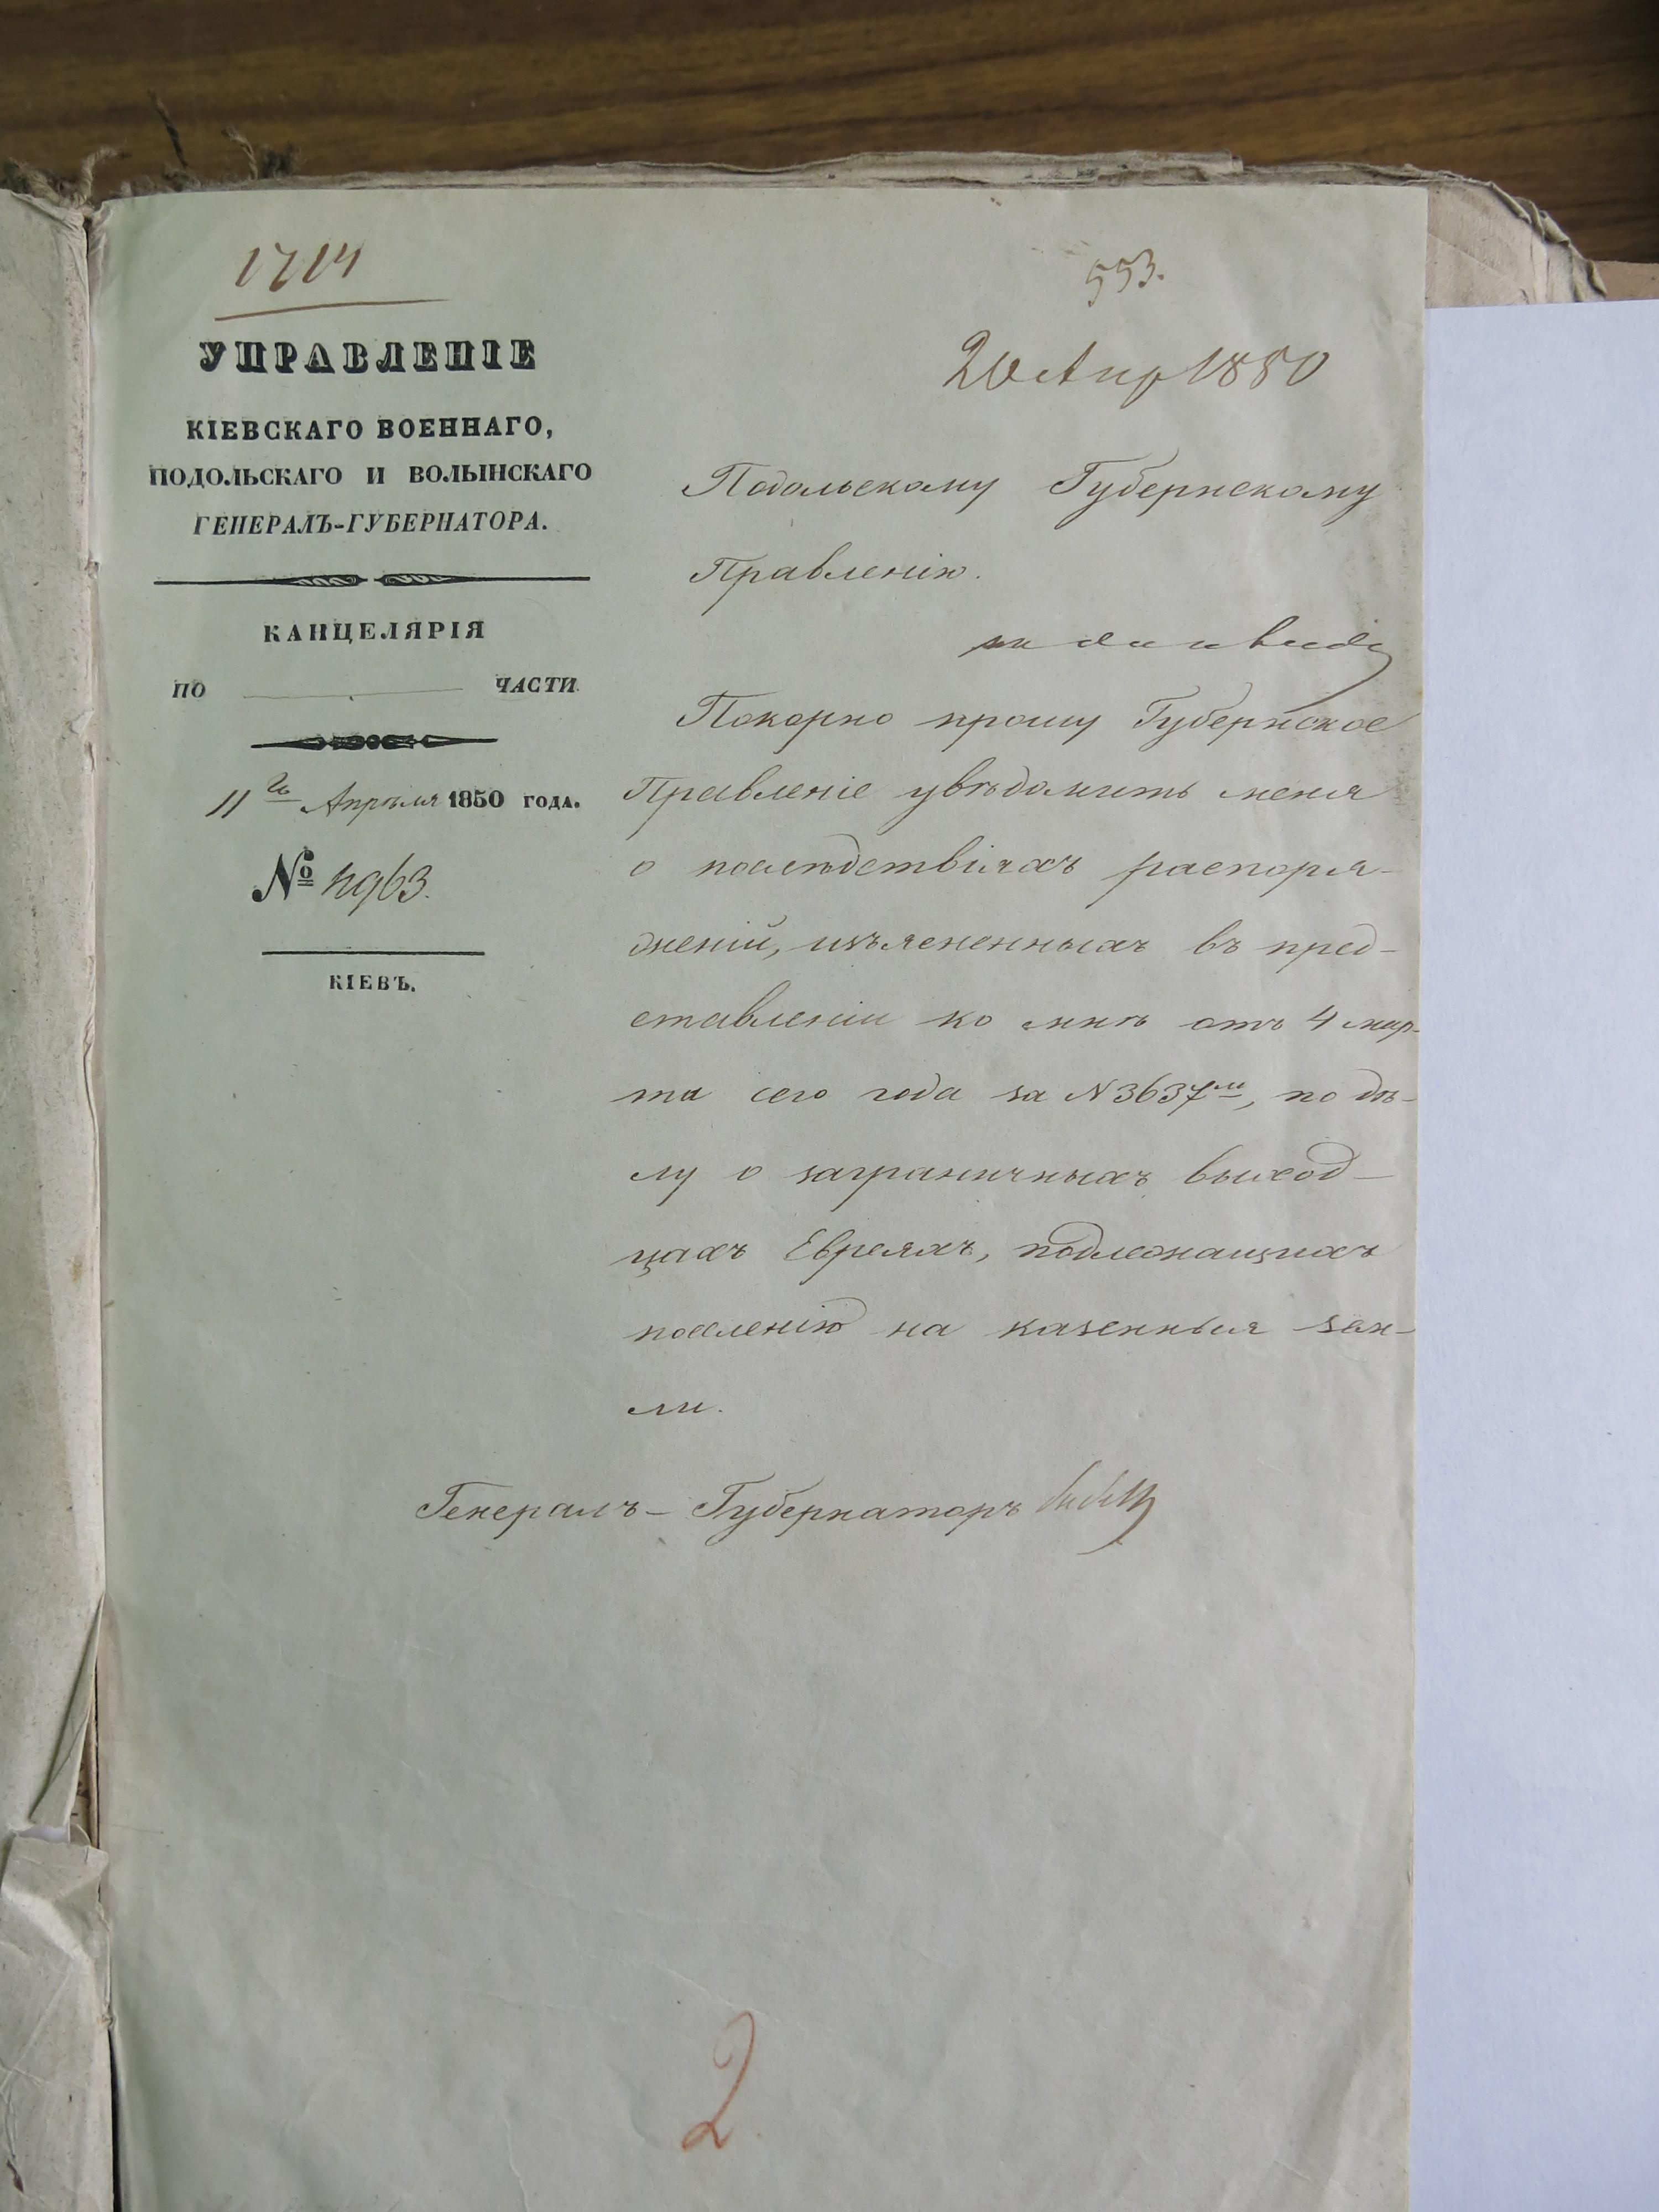 1714
УПРАВЛЕНІЕ
КІЕВСКАГО ВОЕННАГО,
ПОДОЛЬСКАГО И ВОЛЫНСКАГО
ГЕНЕРАЛЪ-ГУБЕРНАТОРА.
КАНЦЕЛЯРІЯ
ПО ЧАСТИ
11го Апрѣля 1850 ГОДА.
№ 4963.
КІЕВЪ.
553.
20 Апр 1850
Подольскому Губернскому
Правленію.
Покорно прошу Губернское
Правленіе увѣдомить меня
о послѣдствіяхъ распоря-
женій, изъясненныхъ въ пред-
ставленіи ко мнѣ отъ 4 мар-
та сего года за N 3637м, по дѣ-
лу о заграничныхъ выход-
цахъ Евреяхъ, подлежащихъ
поселенію на казенныя зем-
ли.
Генералъ-Губернаторъ
2